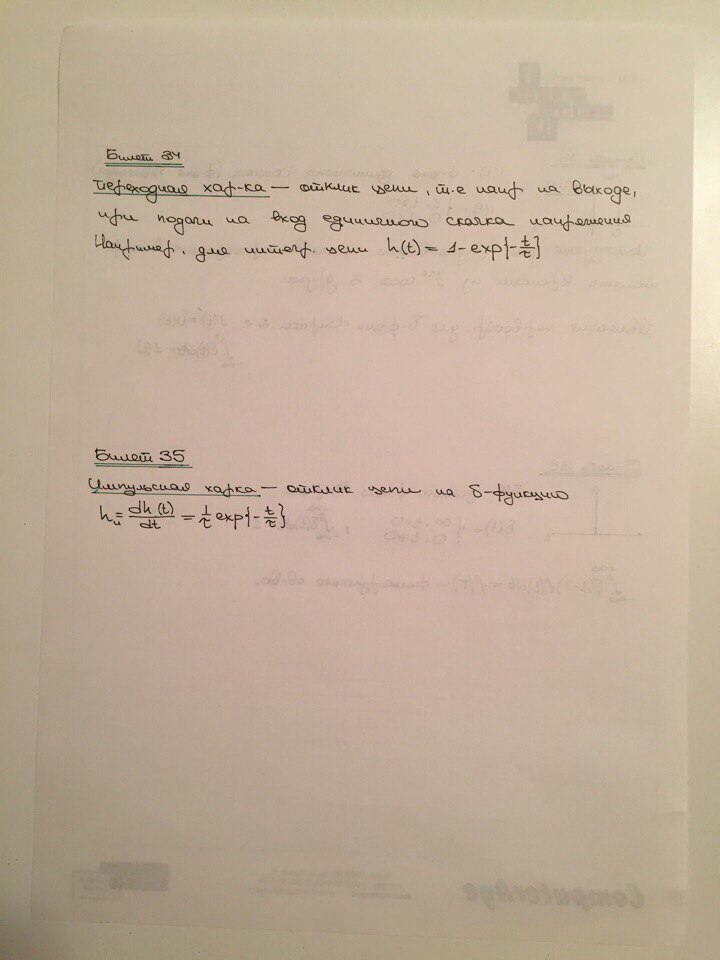 Билет 34
Переходная хар-ка — отклик цепи, т.е напр на выходе,
при подачи на вход единичного скачка напряжения
Например, для интегр. цепи h(t) = 1 - exp{-t/τ}
Билет 35
Импульсная харка — отклик цепи на δ-функцию
hи = dh(t)/dt = 1/τ exp{-t/τ}
ComputerAge